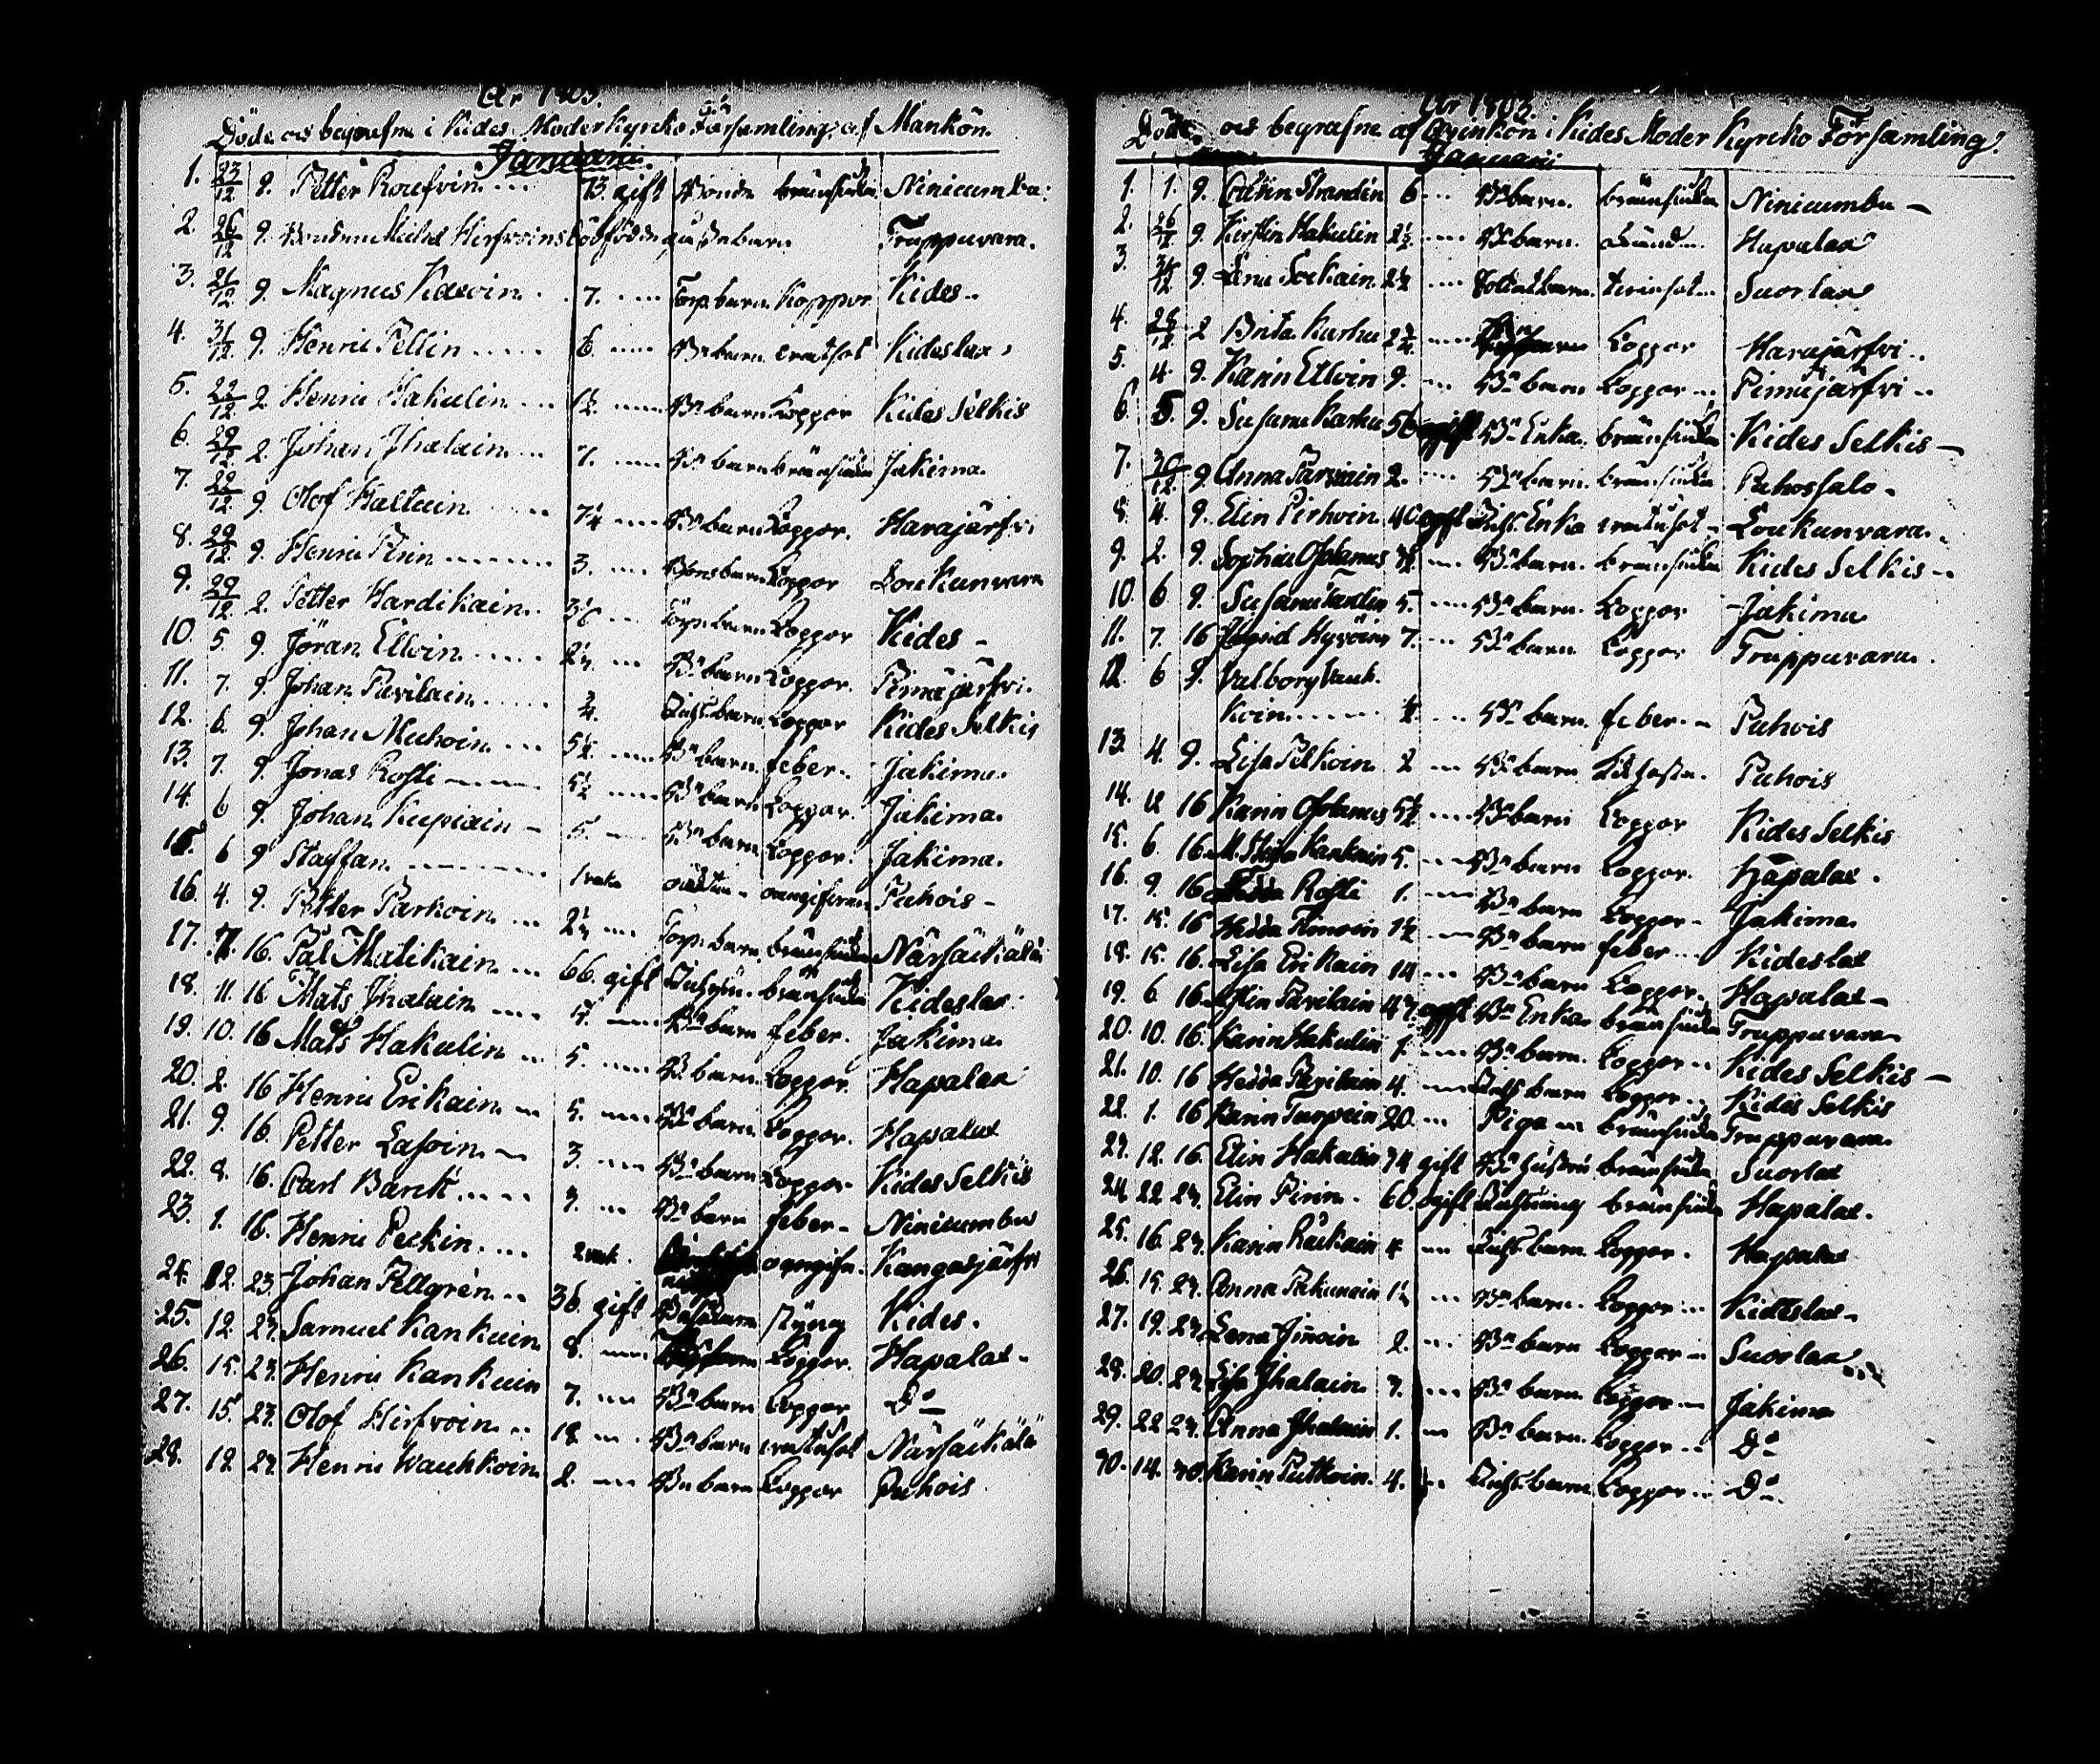 År 1803.
Döde och begrafne i Kides Moderkyrko Församling, af Mankön.
Januarii.
1. 23/12 9. Petter Roufvin ... 73. gift Bonde bränsjuka Niniumba.
2. 26/12 9. Bonden Michel Hirfvoins dödfödde gåssebarn Truppuvara.
3. 26/12 9. Magnus 7. .... Torp. barn Koppor Kides.
4. 31/12 9. Henric Pellin ..... 6. .... Bn barn Kideslax.
5. 22/12 2. Henric Hakulin ... 1½ .... Bn barn Koppor Kides Selkis
6. 29/12 2. Johan Ihalain ... 7. .... Bn barn bränsjuka Jakima.
7. 22/12 9. Olof Haltuin ... 7/4 .... Bn barn Koppor. Harajärfvi
8. 29/12 9. Henric Pirin ....... 3. .... barn Koppor Loukunvara
9. 29/12 2. Petter Hardikain. ... Torp barn Koppor Kides -
10. 5. 9. Jöran Ellvin ..... ... Bn barn Koppor. Pimäjärfvi.
11. 7. 9. Johan Pavilain ..... ¾. Inhs. barn Koppor Kides Selkis
12. 6. 9. Johan Muhoin ... 5½ .... Bn barn feber .. Jakima.
13. 7. 9. Jonas Rossi ... 5½ .... Bn barn Koppor. Jakima.
14. 6 9. Johan Kupiain - 5. ... Bn barn Koppor. Jakima.
15. 6 9 Staffan. ........ 1 vek. oäckta - oangifven Puhois -
16. 4. 9. Petter Parkoin ... 2½ ... Torp. barn bränsjuka Närsäkälä
17. 7. 16. Pål Matikain ... 66. gift Inhysn. bränsjuka Kideslax.
18. 11. 16 Mats Ihalain ... ... Bn barn feber. Jakima.
19. 10. 16 Mats Hakulin ... 5. .... Bn barn Koppor. Hapalax
20. 2. 16 Henric Erikain ... 5. .... Bn barn Koppor. Hapalax
21. 9. 16. Petter Lasoin ... 3. ... Bn barn Koppor. Kides Selkis
22. 8. 16. Carl Barck .... 3. ... Bn barn feber - Niniumba
23. 1. 16. Henric Peckin .... 2 vek. oangifn. Kangasjärfvi
24. 12. 23. Johan Pellgrén ... 36. gift styng Kides.
25. 12. 23. Samuel Kankuin 8. ... Koppor. Hapalax -
26. 15. 23. Henric Kankuin 7. ... Bn barn Koppor Do
27. 15. 23. Olof Hirfvoin .. 18 ... Bn barn Närsäkälä
28. 12 23. Henric Wauhkoin. 2. ... Bn barn Koppor Puhois.
År 1803.
Döde och begrafne af Qvinkön i Kides Moder Kyrko Församling.
Januarii
1. 1. 9. Catrin Strandin 6 ... Bn barn. bränsjuka Niniumba -
2. 26/12 9. Kirstin Hakulin 2½ .... Bn barn. Hapalax
3. 31/12 9. Lena 2½ .... Soldat barn. Suorlax
4. 28/12 2 Brita Karhu 2¾ .... Koppor Harajärfvi ..
5. 4. 9. Karin Ellvin 9. ... Bn barn Koppor ... Pimäjärfvi ..
6. 5. 9. Susana Karhu 56 Bn Enka. bränsjuka Kides Selkis -
7. 30/12. 9. Anna Parviain 2. .... Bn barn. bränsjuka Puhossalo.
8. 4. 9. Elin Pirhoin 40. Inhs. Enka Loukunvara.
9. 2. 9. Sophia ... Bn barn. bränsjuka Kides Selkis -
10. 6 9. Susana 5. .... Bn barn. Koppor Jakima
11. 7. 16 Ingrid Hyvöin 7. ... Bn barn Koppor Truppuvara.
12. 6 9. Valborg Vauh-
koin ...... ¼ ... Bn barn. feber. - Puhois
13. 4. 9. Lisa Pelkoin 2 ... Bn barn Puhois
14. 12 16 Karin 5½ .... Bn barn Koppor Kides Selkis
15. 6. 16. Kankuin 5. ... Bn barn Koppor. Hapalax.
16. 9. 16 Rossi 1. ... Bn barn Koppor - Jakima
17. 15. 16 Hedda 1½ ... Bn barn feber ... Kideslax
18. 15. 16. Lisa Erikain 14 ... Bn barn Koppor. Hapalax -
19. 6. 16. Elin Pavilain 47. Bn Enka bränsjuka Truppuvara
20. 10. 16. Karin Hakulin 1. ... Bn barn. Koppor .. Kides Selkis -
21. 10. 16 Hedda Pavilain 4. ... Inhs barn Koppor .. Kides Selkis
22. 1. 16 Karin Turpein 20. ... Piga ... bränsjuka Truppuvara
23. 12. 16. Elin Hakulin 74 gift Bn hustru bränsjuka Suorlax
24. 22 23. Elin Pirin. 60. ogift bränsjuka Hapalax.
25. 16. 23. Karin Räikain 4 ... Inhs. barn Koppor. Hapalax
26. 15. 23. Anna Pakunain 1½ ... Bn barn. Koppor ... Kideslax -
27. 19. 23. Lena 2. ... Bn barn Koppor ... Suorlax
28. 20. 23. Lisa Ihalain 3. ... Bn barn Koppor ... Jakima
29. 22 23. Anna Ihalain 1. ... Bn barn. Koppor ... Do
30. 14. 30. Karin Putkoin. 4. ... Inhs. barn Koppor ... Do